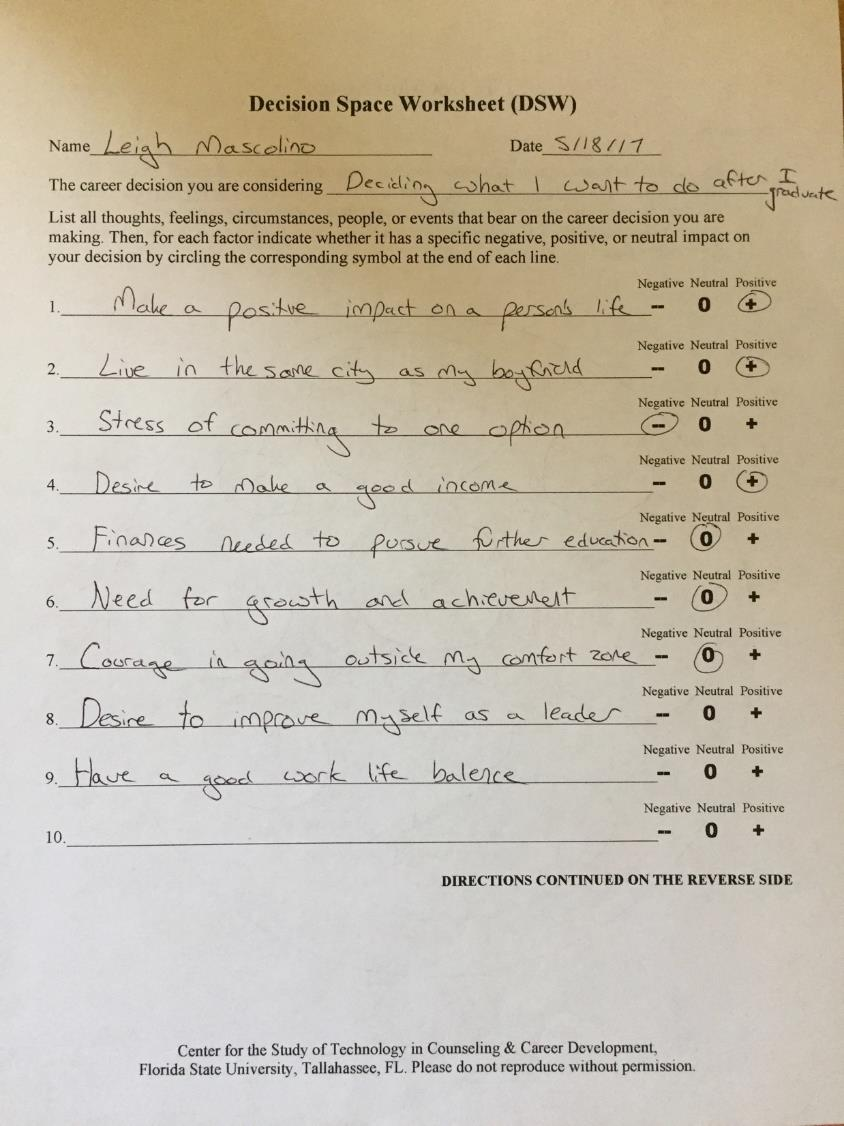 Decision Space Worksheet (DSW)
Name Leigh Mascolino Date 5/18/17
The career decision you are considering Deciding what I want to do after I graduate
List all thoughts, feelings, circumstances, people, or events that bear on the career decision you are
making. Then, for each factor indicate whether it has a specific negative, positive, or neutral impact on
your decision by circling the corresponding symbol at the end of each line.
Negative Neutral Positive
1. Make a positive impact on a person's life -- 0 +
Negative Neutral Positive
2. Live in the same city as my boyfriend -- 0 +
Negative Neutral Positive
3. Stress of committing to one option -- 0 +
Negative Neutral Positive
4. Desire to make a good income -- 0 +
Negative Neutral Positive
5. Finances needed to pursue further education -- 0 +
Negative Neutral Positive
6. Need for growth and achievement -- 0 +
Negative Neutral Positive
7. Courage in going outside my comfort zone -- 0 +
Negative Neutral Positive
8. Desire to improve myself as a leader -- 0 +
Negative Neutral Positive
9. Have a good work life balence -- 0 +
Negative Neutral Positive
10. -- 0 +
DIRECTIONS CONTINUED ON THE REVERSE SIDE
Center for the Study of Technology in Counseling & Career Development,
Florida State University, Tallahassee, FL. Please do not reproduce without permission.